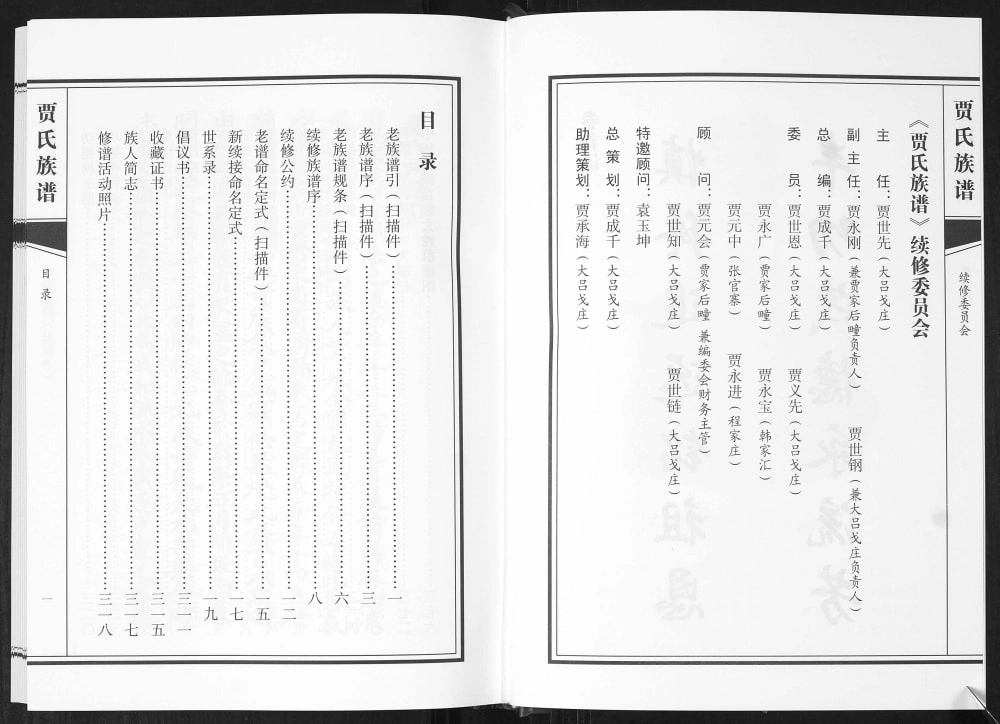 贾氏族谱
续修委员会
《贾氏族谱》续修委员会
主　任：贾世先（大吕戈庄）
副主任：贾永刚（兼贾家后疃负责人）　贾世钢（兼大吕戈庄负责人）
总　编：贾成千（大吕戈庄）
委　员：贾世恩（大吕戈庄）　贾义先（大吕戈庄）
贾永广（贾家后疃）　贾永宝（韩家汇）
贾元中（张官寨）　贾永进（程家庄）
顾　问：贾元会（贾家后疃 兼编委会财务主管）
贾世知（大吕戈庄）　贾世链（大吕戈庄）
特邀顾问：袁玉坤
总策划：贾成千（大吕戈庄）
助理策划：贾承海（大吕戈庄）
目录
老族谱引（扫描件）……一
老族谱序（扫描件）……三
老族谱规条（扫描件）……六
续修族谱序……八
续修公约……一二
老谱命名定式（扫描件）……一五
新续接命名定式……一七
世系录……一九
倡议书……三一一
收藏证书……三一五
族人简志……三一七
修谱活动照片……三一八
贾氏族谱
目录
一